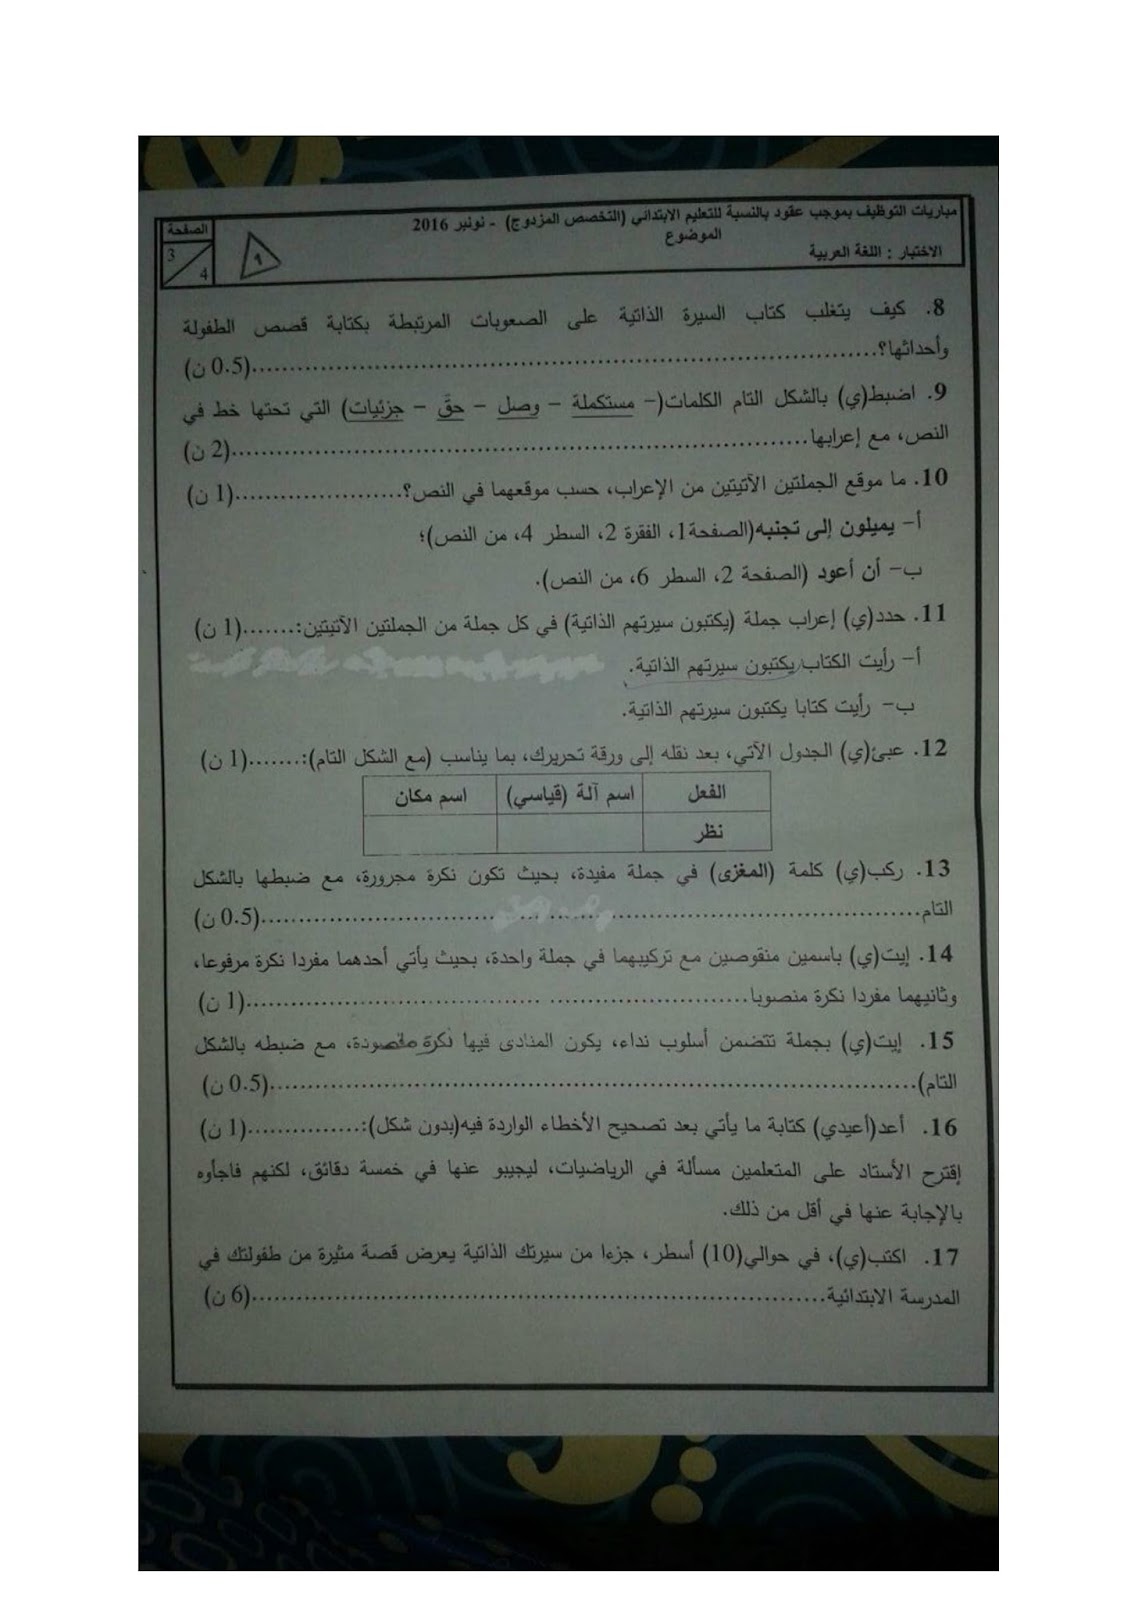 مباريات التوظيف بموجب عقود بالنسبة للتعليم الابتدائي (التخصص المزدوج) - نونبر 2016
الموضوع
الاختبار : اللغة العربية
الصفحة
3
4
1
8. كيف يتغلب كتاب السيرة الذاتية على الصعوبات المرتبطة بكتابة قصص الطفولة
وأحداثها؟..........................................................................(0.5 ن)
9. اضبط(ي) بالشكل التام الكلمات(- مستكملة - وصل - حقَّ - جزئيات) التي تحتها خط في
النص، مع إعرابها..........................................................................(2 ن)
10. ما موقع الجملتين الآتيتين من الإعراب، حسب موقعهما في النص؟......................(1 ن)
أ- يميلون إلى تجنبه(الصفحة1، الفقرة 2، السطر 4، من النص)؛
ب- أن أعود (الصفحة 2، السطر 6، من النص).
11. حدد(ي) إعراب جملة (يكتبون سيرتهم الذاتية) في كل جملة من الجملتين الآتيتين:.......(1 ن)
أ- رأيت الكتاب يكتبون سيرتهم الذاتية.
ب- رأيت كتابا يكتبون سيرتهم الذاتية.
12. عبئ(ي) الجدول الآتي، بعد نقله إلى ورقة تحريرك، بما يناسب (مع الشكل التام):.......(1 ن)
الفعل اسم آلة (قياسي) اسم مكان
نظر
13. ركب(ي) كلمة (المغزى) في جملة مفيدة، بحيث تكون نكرة مجرورة، مع ضبطها بالشكل
التام..........................................................................(0.5 ن)
14. إيت(ي) باسمين منقوصين مع تركيبهما في جملة واحدة، بحيث يأتي أحدهما مفردا نكرة مرفوعا،
وثانيهما مفردا نكرة منصوبا..........................................................................(1 ن)
15. إيت(ي) بجملة تتضمن أسلوب نداء، يكون المنادى فيها نكرة مقصودة، مع ضبطه بالشكل
التام)..........................................................................(0.5 ن)
16. أعد(أعيدي) كتابة ما يأتي بعد تصحيح الأخطاء الواردة فيه(بدون شكل):...............(1 ن)
إقترح الأستاد على المتعلمين مسألة في الرياضيات، ليجيبو عنها في خمسة دقائق، لكنهم فاجأوه
بالإجابة عنها في أقل من ذلك.
17. اكتب(ي)، في حوالي(10) أسطر، جزءا من سيرتك الذاتية يعرض قصة مثيرة من طفولتك في
المدرسة الابتدائية..........................................................................(6 ن)